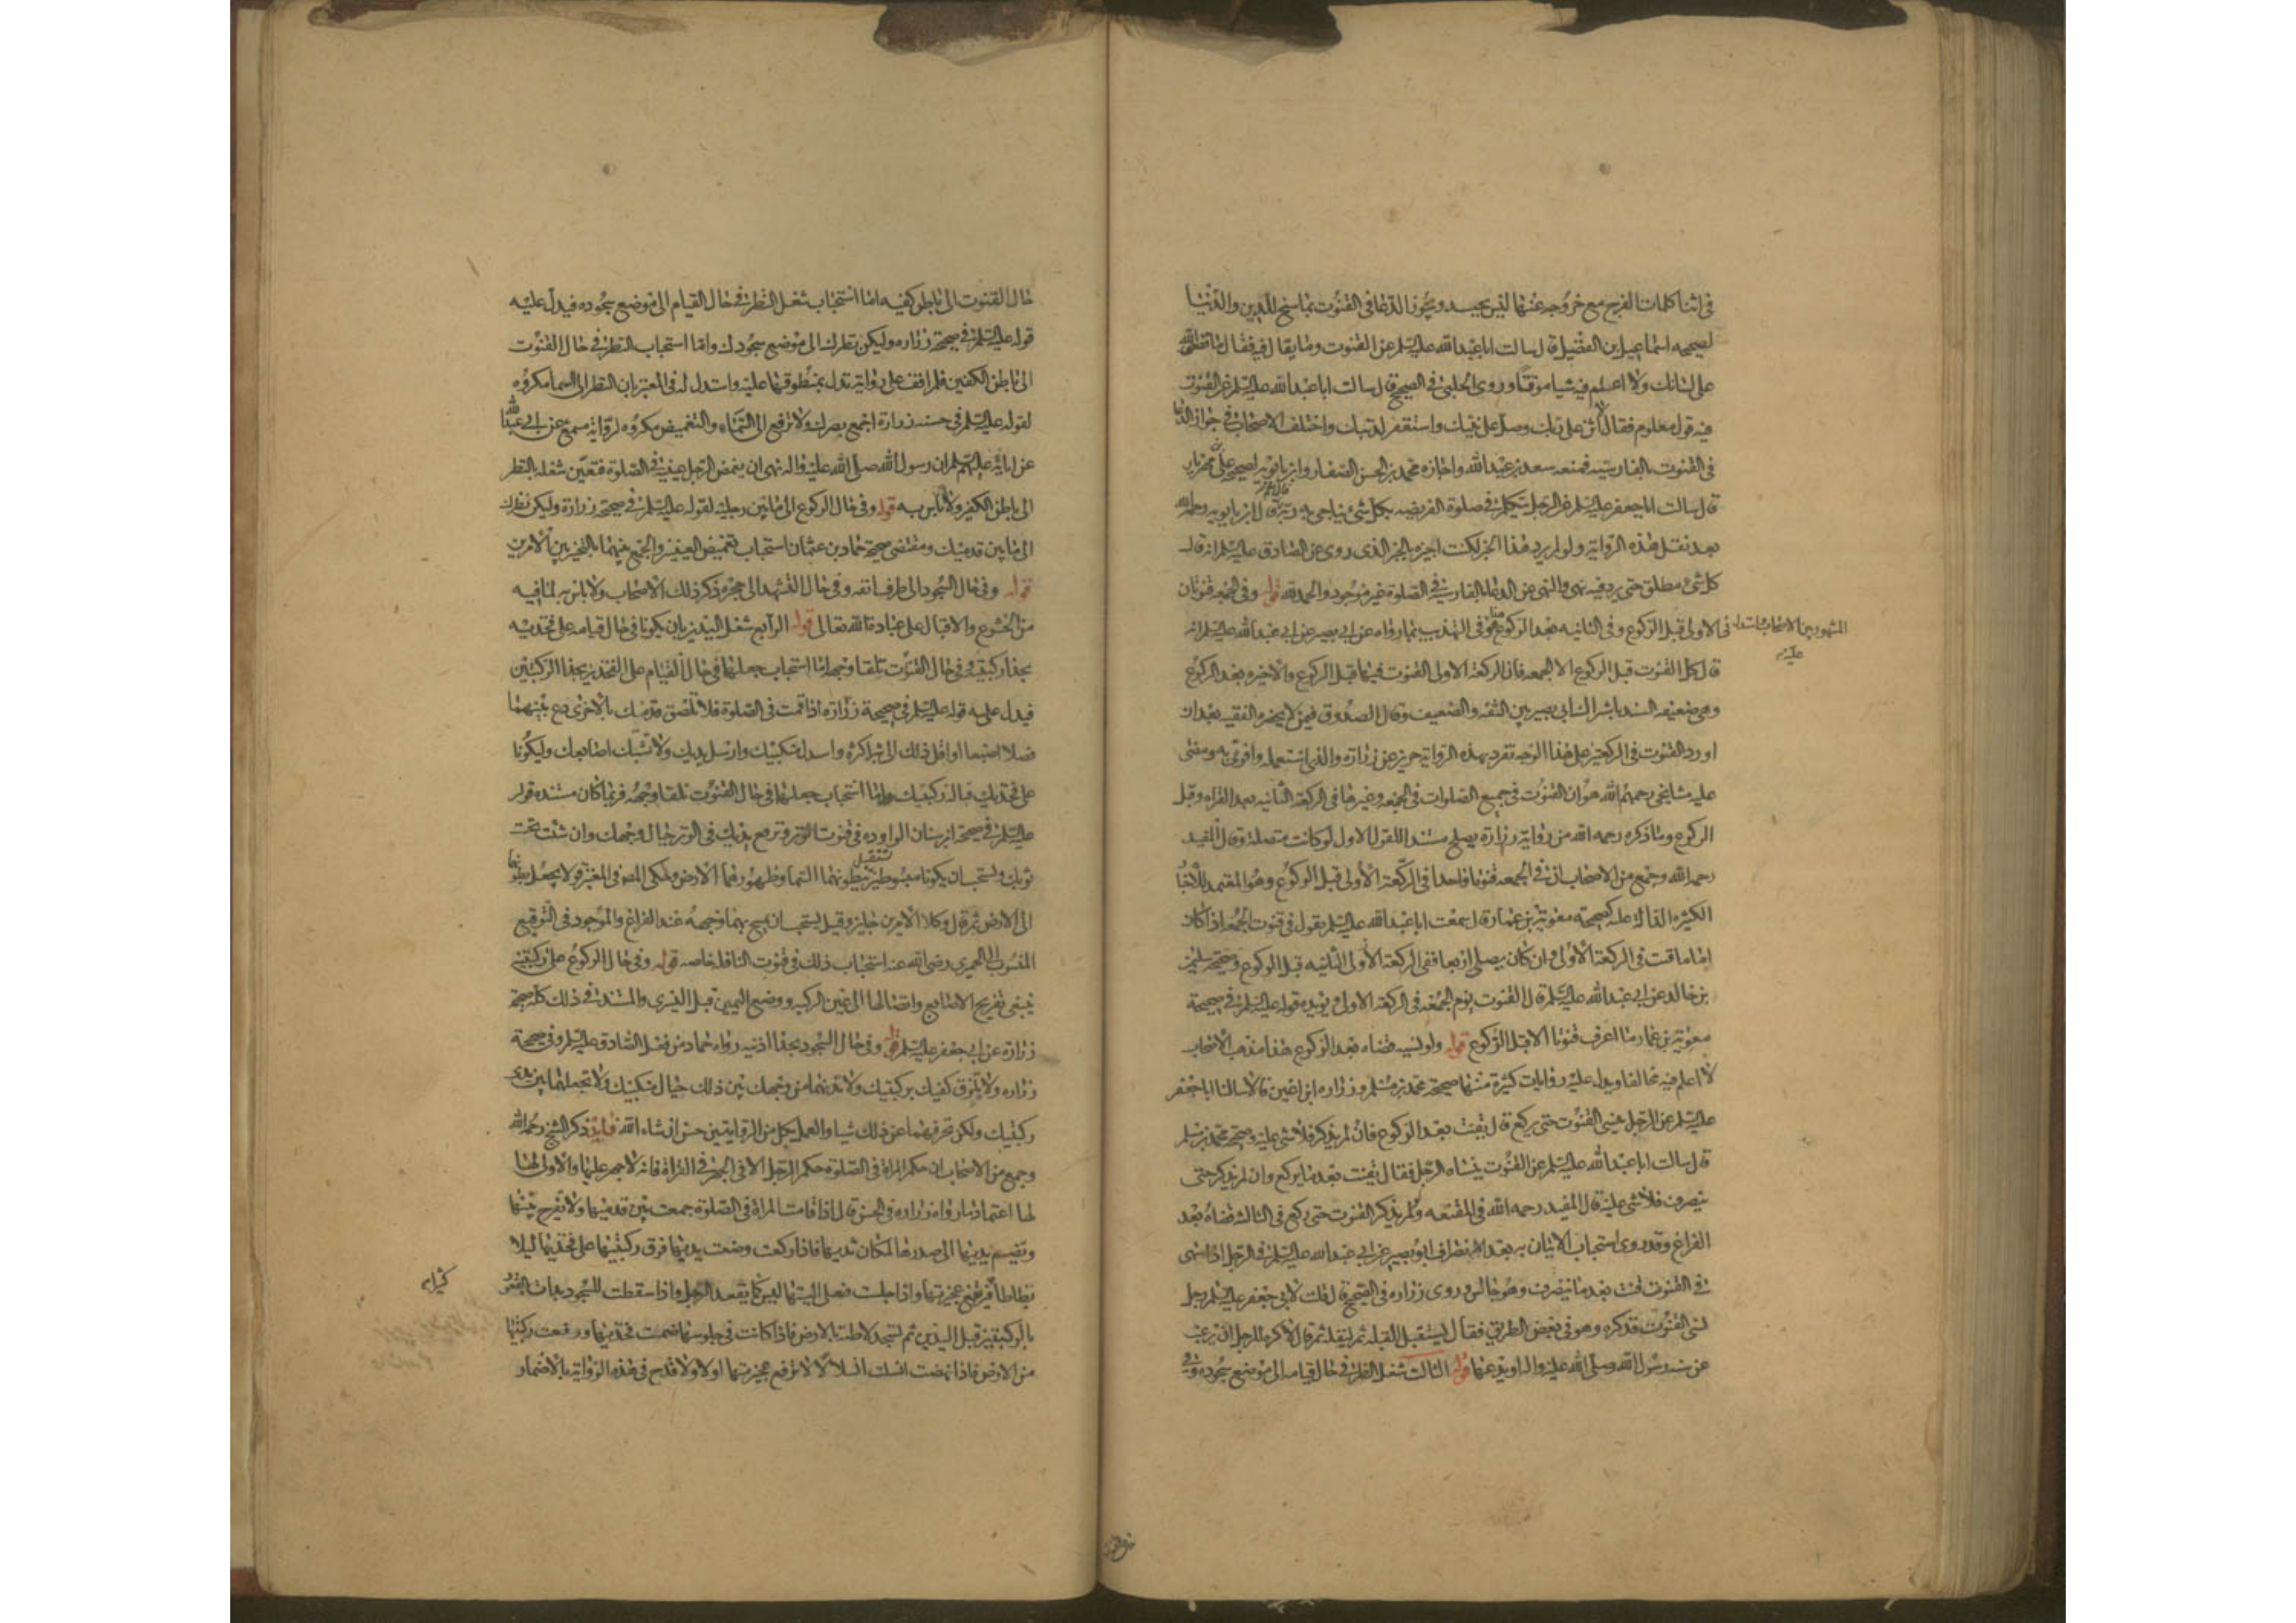 في اثنا كلمات الفرج مع خروجه عنها ليس بجيد ويجوز الدعا في القنوت بما سنح للدين والدنيا
لصحيحه اسماعيل بن الفضل قال سالت ابا عبد الله عليه السلم عن القنوت وما يقال فيه فقال ما قضى الله
على لسانك ولا اعلم فيه شيا موقتا وروى الحلبي في الصحيح قال سالت ابا عبد الله عليه السلم عن القنوت
فيه قول معلوم فقال اثن على ربك وصل على نبيك واستغفر لذنبك واختلف الاصحاب في جواز الدعا
في القنوت بالفارسيه فمنعه سعد بن عبد الله واجازه محمد بن الحسن الصفار وابن بابويه لصحيحه علي بن مهزيار
قال سالت ابا جعفر عليه السلم عن الرجل يتكلم في صلوة الفريضه بكل شئ يناجي به ربه قال نعم قال ابن بابويه رحمه الله
بعد نقل هذه الرواية ولو لم يرد هذا الخبر لكنت اجيزه بالخبر الذى روى عن الصادق عليه السلم انه قال
كل شئ مطلق حتى يرد فيه نهى والنهى عن الدعا بالفارسية في الصلوة غير موجود والحمد لله قوله وفى الجمعه قنوتان
في الاولى قبل الركوع وفى الثانيه بعد الركوع هذا هو المشهور بين الاصحاب استدل عليه في التهذيب بما رواه عن ابى بصير عن ابى عبد الله عليه السلم انه
قال كل القنوت قبل الركوع الا الجمعه فان الركعة الاولى القنوت فيها قبل الركوع والاخيره بعد الركوع
وهى ضعيفه السند باشتراك ابى بصير بين الثقه والضعيف وقال الصدوق في من لا يحضره الفقيه بعد ان
اورد القنوت في الركعتين على هذا الوجه تفرد بهذه الرواية حريز عن زرارة والذى استعمله وافتى به ومضى
عليه مشايخى رحمهم الله هو ان القنوت في جميع الصلوات في الجمعه وغيرها في الركعة الثانيه بعد القراه وقبل
الركوع وما ذكره رحمه الله من رواية زرارة يصلح مستندا للقول الاول لو كانت متصلة وقال المفيد
رحمه الله وجمع من الاصحاب ان في الجمعه قنوتا واحدا في الركعة الاولى قبل الركوع وهو المعتمد للاخبار
الكثيره الداله عليه كصحيحة معوية بن عمار قال سمعت ابا عبد الله عليه السلم يقول في قنوت الجمعة اذا كان
اماما قنت في الركعة الاولى وان كان يصلى اربعا ففى الركعة الثانيه قبل الركوع وصحيحة سليمن
بن خالد عن ابى عبد الله عليه السلم قال القنوت يوم الجمعه في الركعة الاولى ويؤيده قوله عليه السلم في صحيحة
معوية بن عمار ما اعرف قنوتا الا قبل الركوع قوله ولو نسيه قضاه بعد الركوع هذا مذهب الاصحاب
لا اعلم فيه مخالفا ويدل عليه روايات كثيرة منها صحيحة محمد بن مسلم وزراره ابن اعين قالا سالنا ابا جعفر
عليه السلم عن الرجل ينسى القنوت حتى يركع قال يقنت بعد الركوع فان لم يذكر فلا شى عليه وصحيحة محمد بن مسلم
قال سالت ابا عبد الله عليه السلم عن القنوت ينساه الرجل فقال يقنت بعد ما يركع وان لم يذكر حتى
ينصرف فلا شى عليه قال المفيد رحمه الله في المقنعه ولو لم يذكر القنوت حتى ركع في الثالثه قضاه بعد
الفراغ وقد روى استحباب الاتيان به بعد الانصراف ابو بصير عن ابى عبد الله عليه السلم في الرجل اذا سهى
في القنوت قنت بعد ما ينصرف وهو جالس وروى زراره في الصحيح قال قلت لابى جعفر عليه السلم رجل
نسى القنوت فذكره وهو في بعض الطريق فقال يستقبل القبله ثم ليقله ثم قال انى لاكره للرجل ان يرغب
عن سنه رسول الله صلى الله عليه واله او يدعها قوله الثالث شغل النظر في حال قيامه الى موضع سجوده وفى
حال القنوت الى باطن كفيه اما استحباب شغل النظر في حال القيام الى موضع سجوده فيدل عليه
قوله عليه السلم في صحيحة زراره وليكن نظرك الى موضع سجودك واما استحباب النظر في حال القنوت
الى باطن الكفين فلم اقف على رواية تدل بمنطوقها عليه واستدل له في المعتبر بان النظر الى السما مكروه
لقوله عليه السلم في حسنه زرارة اجمع بصرك ولا ترفعه الى السماء والتغميض مكروه لرواية مسمع عن ابى عبد الله
عن ابائه عليهم السلم ان رسول الله صلى الله عليه واله نهى ان يغمض الرجل عينيه في الصلوة فتعين شغله بالنظر
الى باطن الكفين ولا باس به قوله وفى حال الركوع الى ما بين رجليه لقوله عليه السلم في صحيحة زرارة وليكن نظرك
الى ما بين قدميك ومقتضى صحيحة حماد بن عثمان استحباب تغميض العينين والجمع بينهما بالتخيير بين الامرين
قوله وفى حال السجود الى طرف انفه وفى حال التشهد الى حجره ذكر ذلك الاصحاب ولا باس به لما فيه
من الخشوع والاقبال على عبادة الله تعالى قوله الرابع شغل اليدين بان يكونا في حال قيامه على فخذيه
بحذا ركبتيه وفى حال القنوت تلقا وجهه اما استحباب جعلهما في حال القيام على الفخذين بحذا الركبتين
فيدل عليه قوله عليه السلم في صحيحة زراره اذا قمت في الصلوة فلا تلصق قدمك بالاخرى دع بينهما
فصلا اصبعا اقل ذلك الى شبر اكثره واسدل منكبيك وارسل يديك ولا تشبك اصابعك وليكونا
على فخذيك قبالة ركبتيك واما استحباب جعلهما في حال القنوت تلقا وجهه فربما كان مستنده قوله
عليه السلم في صحيحة ابن سنان الوارده في قنوت الوتر وترفع يديك في الوتر حيال وجهك وان شئت تحت
ثوبك ويستحب ان يكونا مبسوطتين تستقبل ببطونهما السما وظهورهما الارض وحكى المصنف في المعتبر قولا بجعل بطونهما
الى الارض ثم قال وكلا الامرين جايز وقيل يستحب ان يمسح بهما وجهه عند الفراغ والموجود في التوقيع
المنسوب الى الحميرى رضى الله عنه استحباب ذلك في قنوت النافلة خاصه قوله وفى حال الركوع على ركبتيه
ينبغى تفريج الاصابع وايصالها الى عين الركبه ووضع اليمين قبل اليسرى والمستند في ذلك كله صحيحة
زرارة عن ابى جعفر عليه السلم قوله وفى حال السجود بحذا اذنيه رواه حماد من فعل الصادق عليه السلم وفى صحيحة
زراره ولا تلزق كفيك بركبتيك ولا تدنهما من وجهك بين ذلك حيال منكبيك ولا تجعلهما بين يدى
ركبتيك ولكن تحرفهما عن ذلك شيا والعمل بكل من الروايتين حسن ان شاء الله فايدة ذكر الشيخ رحمه الله
وجمع من الاصحاب ان حكم المراة في الصلوة حكم الرجل الا في الجهر في القراة فانه لا جهر عليها والاولى لها
لها اعتماد ما رواه زراره في الحسن قال اذا قامت المراة في الصلوة جمعت بين قدميها ولا تفرج بينهما
وتضم يديها الى صدرها لمكان ثدييها فاذا ركعت وضعت يديها فوق ركبتيها على فخذيها ليلا
تطاطا كثيرا فترتفع عجيزتها واذا جلست فعلى اليتيها ليس كما يقعد الرجل واذا سقطت للسجود بدات بالقعود
بالركبتين قبل اليدين ثم تسجد لاطئة بالارض فاذا كانت في جلوسها ضمت فخذيها ورفعت ركبتيها
من الارض فاذا نهضت انسلت انسلالا لا ترفع عجيزتها اولا ولا قدح في هذه الرواية بالاضمار